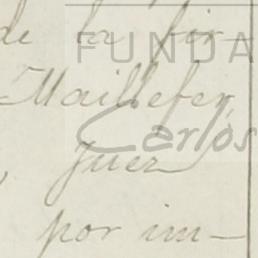 de la fir-
FUNDA
Maillefer,
Carlos
Juez
por im-